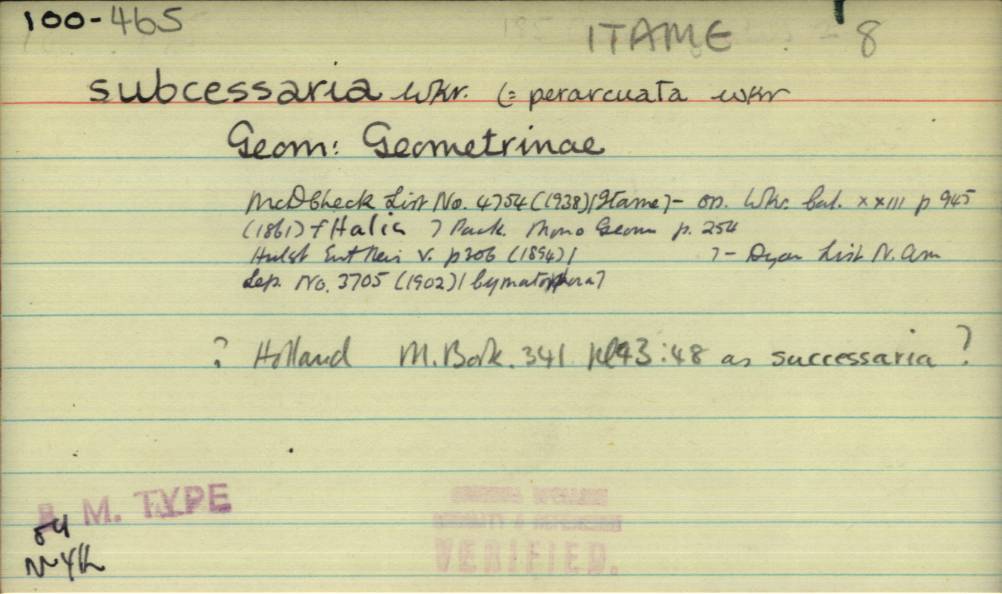 100-465
ITAME 8
subcessaria wkr. (= perarcuata wkr
Geom: Geometrinae
McD Check List No. 4754 (1938) [Itame] - on. Wkr. Cat. xxiii p 945
(1861) + Halia ] Pack. Mono Geom p. 254
Hulst Ent. v. p206 (1894) [ ] - Dyar List N. Am
Lep. No. 3705 (1902) [ Cymatophora ]
? Holland M. Book. 341 pl 43:48 as successaria ?
B. M. TYPE
VERIFIED.